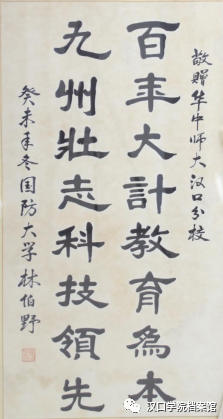 敬赠华中师大汉口分校
百年大計教育為本
九州壯志科技領先
癸未年冬国防大学林伯野
汉口学院档案馆